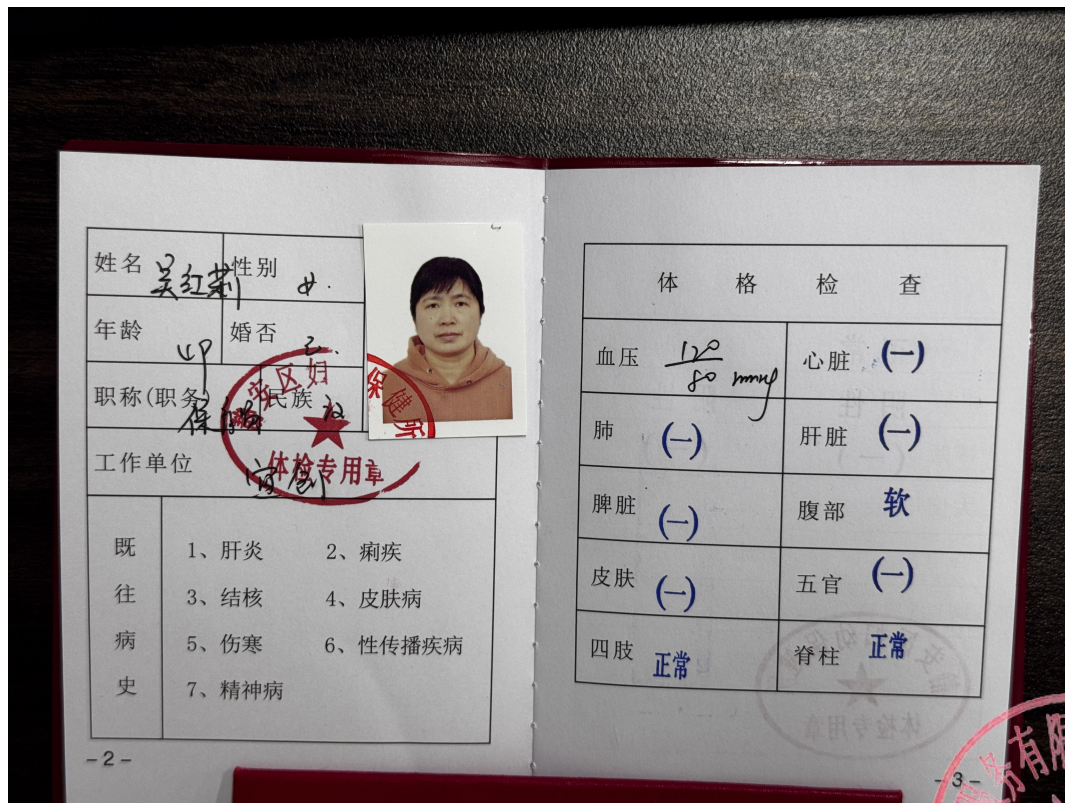 姓名 吴红莉 性别 女.
年龄 婚否 已.
职称(职务) 民族 汉
工作单位
体检专用章
保健所
既往病史
1、肝炎 2、痢疾
3、结核 4、皮肤病
5、伤寒 6、性传播疾病
7、精神病
-2-
体格检查
血压 120/80 mmHg 心脏 (一)
肺 (一) 肝脏 (一)
脾脏 (一) 腹部 软
皮肤 (一) 五官 (一)
四肢 正常 脊柱 正常
体检专用章
-3-
务有限